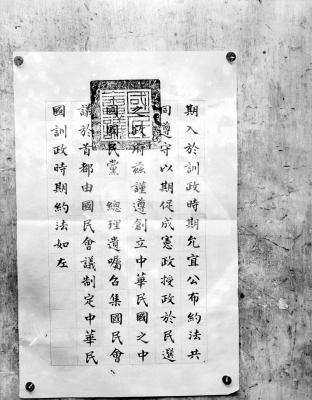 期入於訓政時期允宜公布約法共
同遵守以期促成憲政授政於民選
之政府茲謹遵創立中華民國之中
國國民黨　總理遺囑召集國民會
議於首都由國民會議制定中華民
國訓政時期約法如左